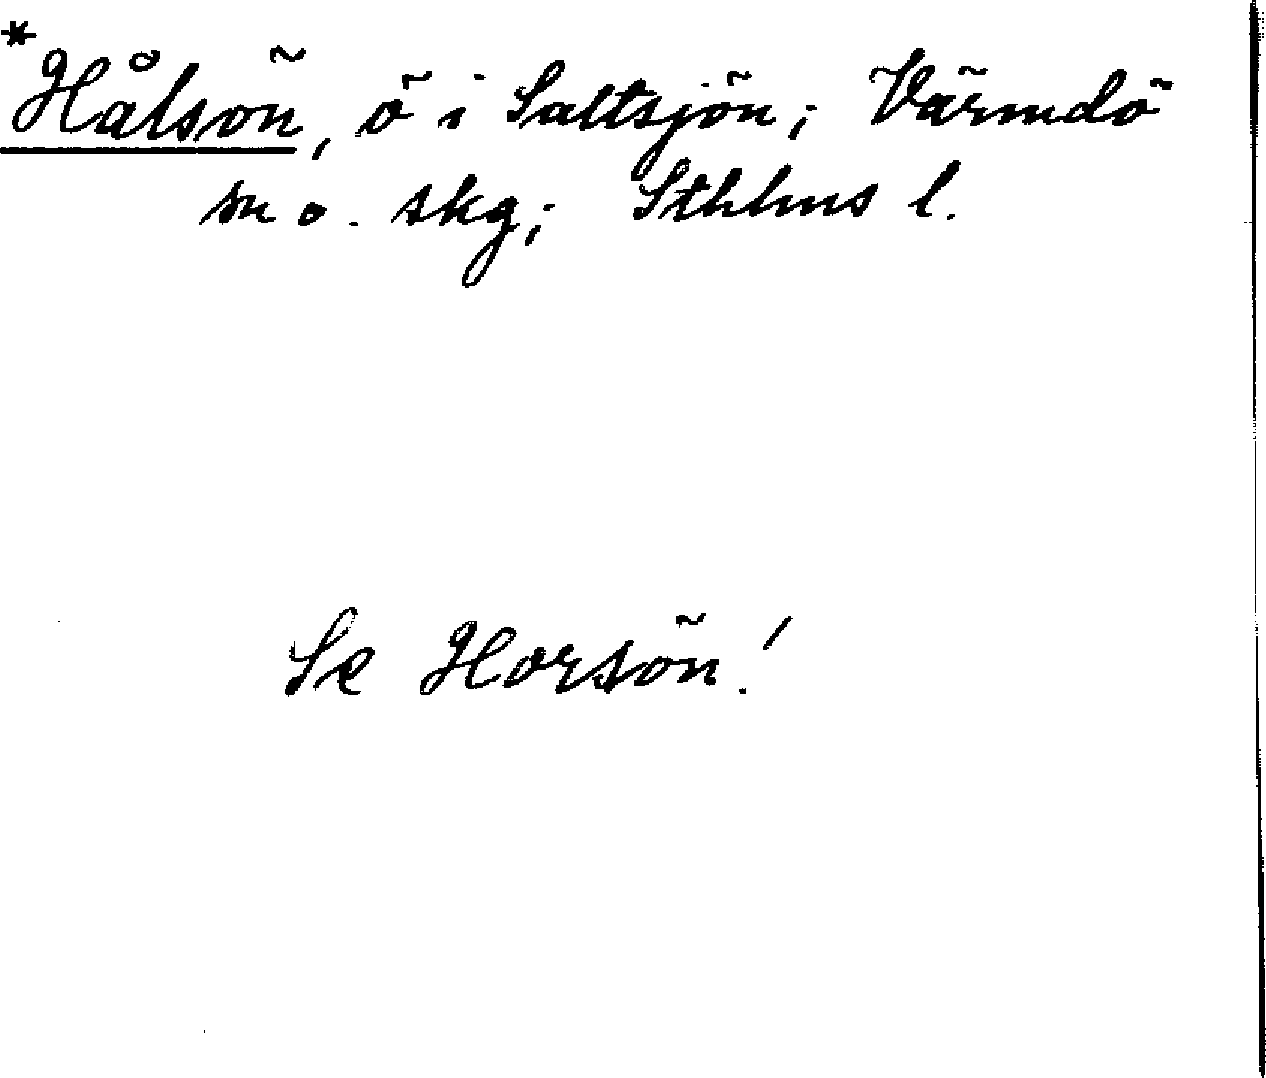 *Hålsön, ö i Saltsjön; Värmdö
sn o. skg; Sthlms l.
Se Horsön!